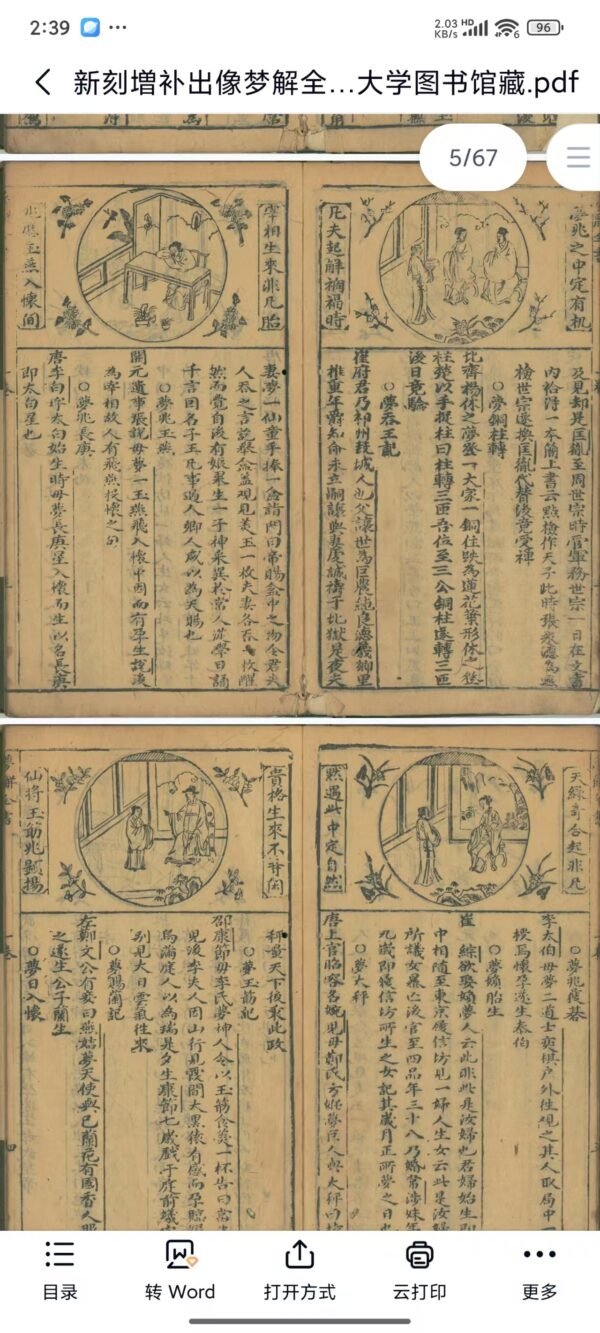 2:39
2.03 KB/s
HD
6
96
新刻增补出像梦解全...大学图书馆藏.pdf
5/67
夢兆之中定有机
凡夫起解禍福時
及見却是匡胤至周世宗時官軍務世宗一日在文書
内恰得一本簡上書云點檢作天子此時張永德為點
檢世宗遂換匡胤代替後竟受禅
○夢銅柱轉
北齊楊休之夢登一大冢一銅住趺為蓮花葉形休之從
柱礎以手捉柱曰柱轉三匝吾位至三公銅柱遂轉三匝
後日竟驗
○夢吞玉記
崔府君乃祁州鼓城人也父讓世為巨農純良德義鄉里
推重年爵知命未立嗣讓與妻慶誠禱于北嶽是夜夫
宰相生來非凡胎
兆應玉燕入懷间
妻夢一仙童手捧一盒請問曰帝賜盒中之物令君夫
人吞之言訖發盒盖視見美玉一枚夫妻各吞一枚醒
然而覚自後有娠果生一子神采異於常人從學日誦
千言因名子玉凡事過人鄉人咸以為天賜也
○夢兆玉燕
開元遺事張說母夢一玉燕飛入懷中因而有孕生說後
為宰相故人有飛燕投懷之句
○夢兆長庚
唐李白字太白始生時母夢長庚星入懷而生以名長庚
即太白星也
天緣奇合起非凡
默遇此中定自然
○夢兆覆碁
李太伯母夢二道士奕棋户外往視之其人取局中一
授焉懷孕遂生泰伯
○夢婦胎生
崔 綜欲娶婦夢人云此非此是汝婦也君婦始生即
中相随至東京履信坊見一婦人生女云此是汝婦
所議女暴亡後官至四品年三十八乃婚常涉妹年
九歲即履信坊所生之女記其歲月正所夢之日也
○夢大秤
唐上官昭容名婉兒母鄭氏方娠夢巨人與大秤曰持
貴格生來不等闲
仙将玉筯兆顕揚
秤量天下後聚此政
○夢玉筯記
邵康節母李氏夢神人令以玉筯食羹一杯告曰當生
見後李夫人因山行見霞間大黑猿有感而孕臨
烏滿庭人以為瑞是夕生康節七歲戲于庭前蟻
别見大日雲氣往來
○夢賜蘭記
左鄭文公有妾曰燕姞夢天使與己蘭花有國香人服
之遂生公子蘭生
○夢日入懷
目录
转 Word
打开方式
云打印
更多